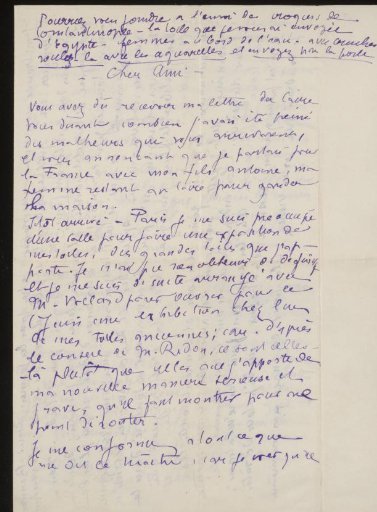 Pourriez vous joindre a l'envoi des croquis de
Constantinople - la toile que je vous ai envoyée
d'Egypte - femmes au bord de l'eau - avec
roulez la avec les aquarelles et envoyez par la poste
- Cher Ami -
Vous avez du recevoir ma lettre du Caire
vous disant combien j'avais été peiné
des malheurs qui vous
et vous annonçant que je partais pour
la France avec mon fils Antoine, ma
femme restant au Caire pour garder
la maison.
Sitot arrivé a Paris je me suis préoccupé
d'une salle pour faire une exposition de
mes toiles, des grandes toiles que j'ap-
porte. Je
et je me suis de suite arrangé avec
M. Vollard pour ouvrir pour le
1 Juin une exhibition chez lui
de mes toiles anciennes; car d'après
le conseil de M. Redon, ce sont celles-
-là plutot que celles que j'apporte de
ma nouvelle manière sérieuse et
grave, qu'il faut montrer pour ne
point dérouter.
Je me conforme a tout ce que
me dit ce Maître, car je